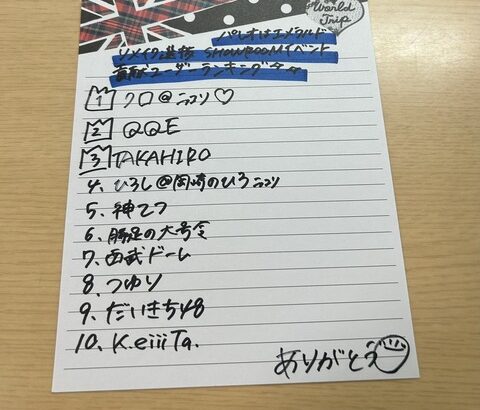 World
Trip
パレオはエメラルド
リメイク選抜 SHOWROOMイベント
貢献ユーザーランキング☆☆
1 クロ@ニコソ♡
2 QQE
3 TAKAHIRO
4. ひろし@岡崎のひろニコソ
5. 神てつ
6. 豚足の大号令
7. 西武ドーム
8. つゆり
9. だいきち48
10. K.eiiiTa.
ありがとう